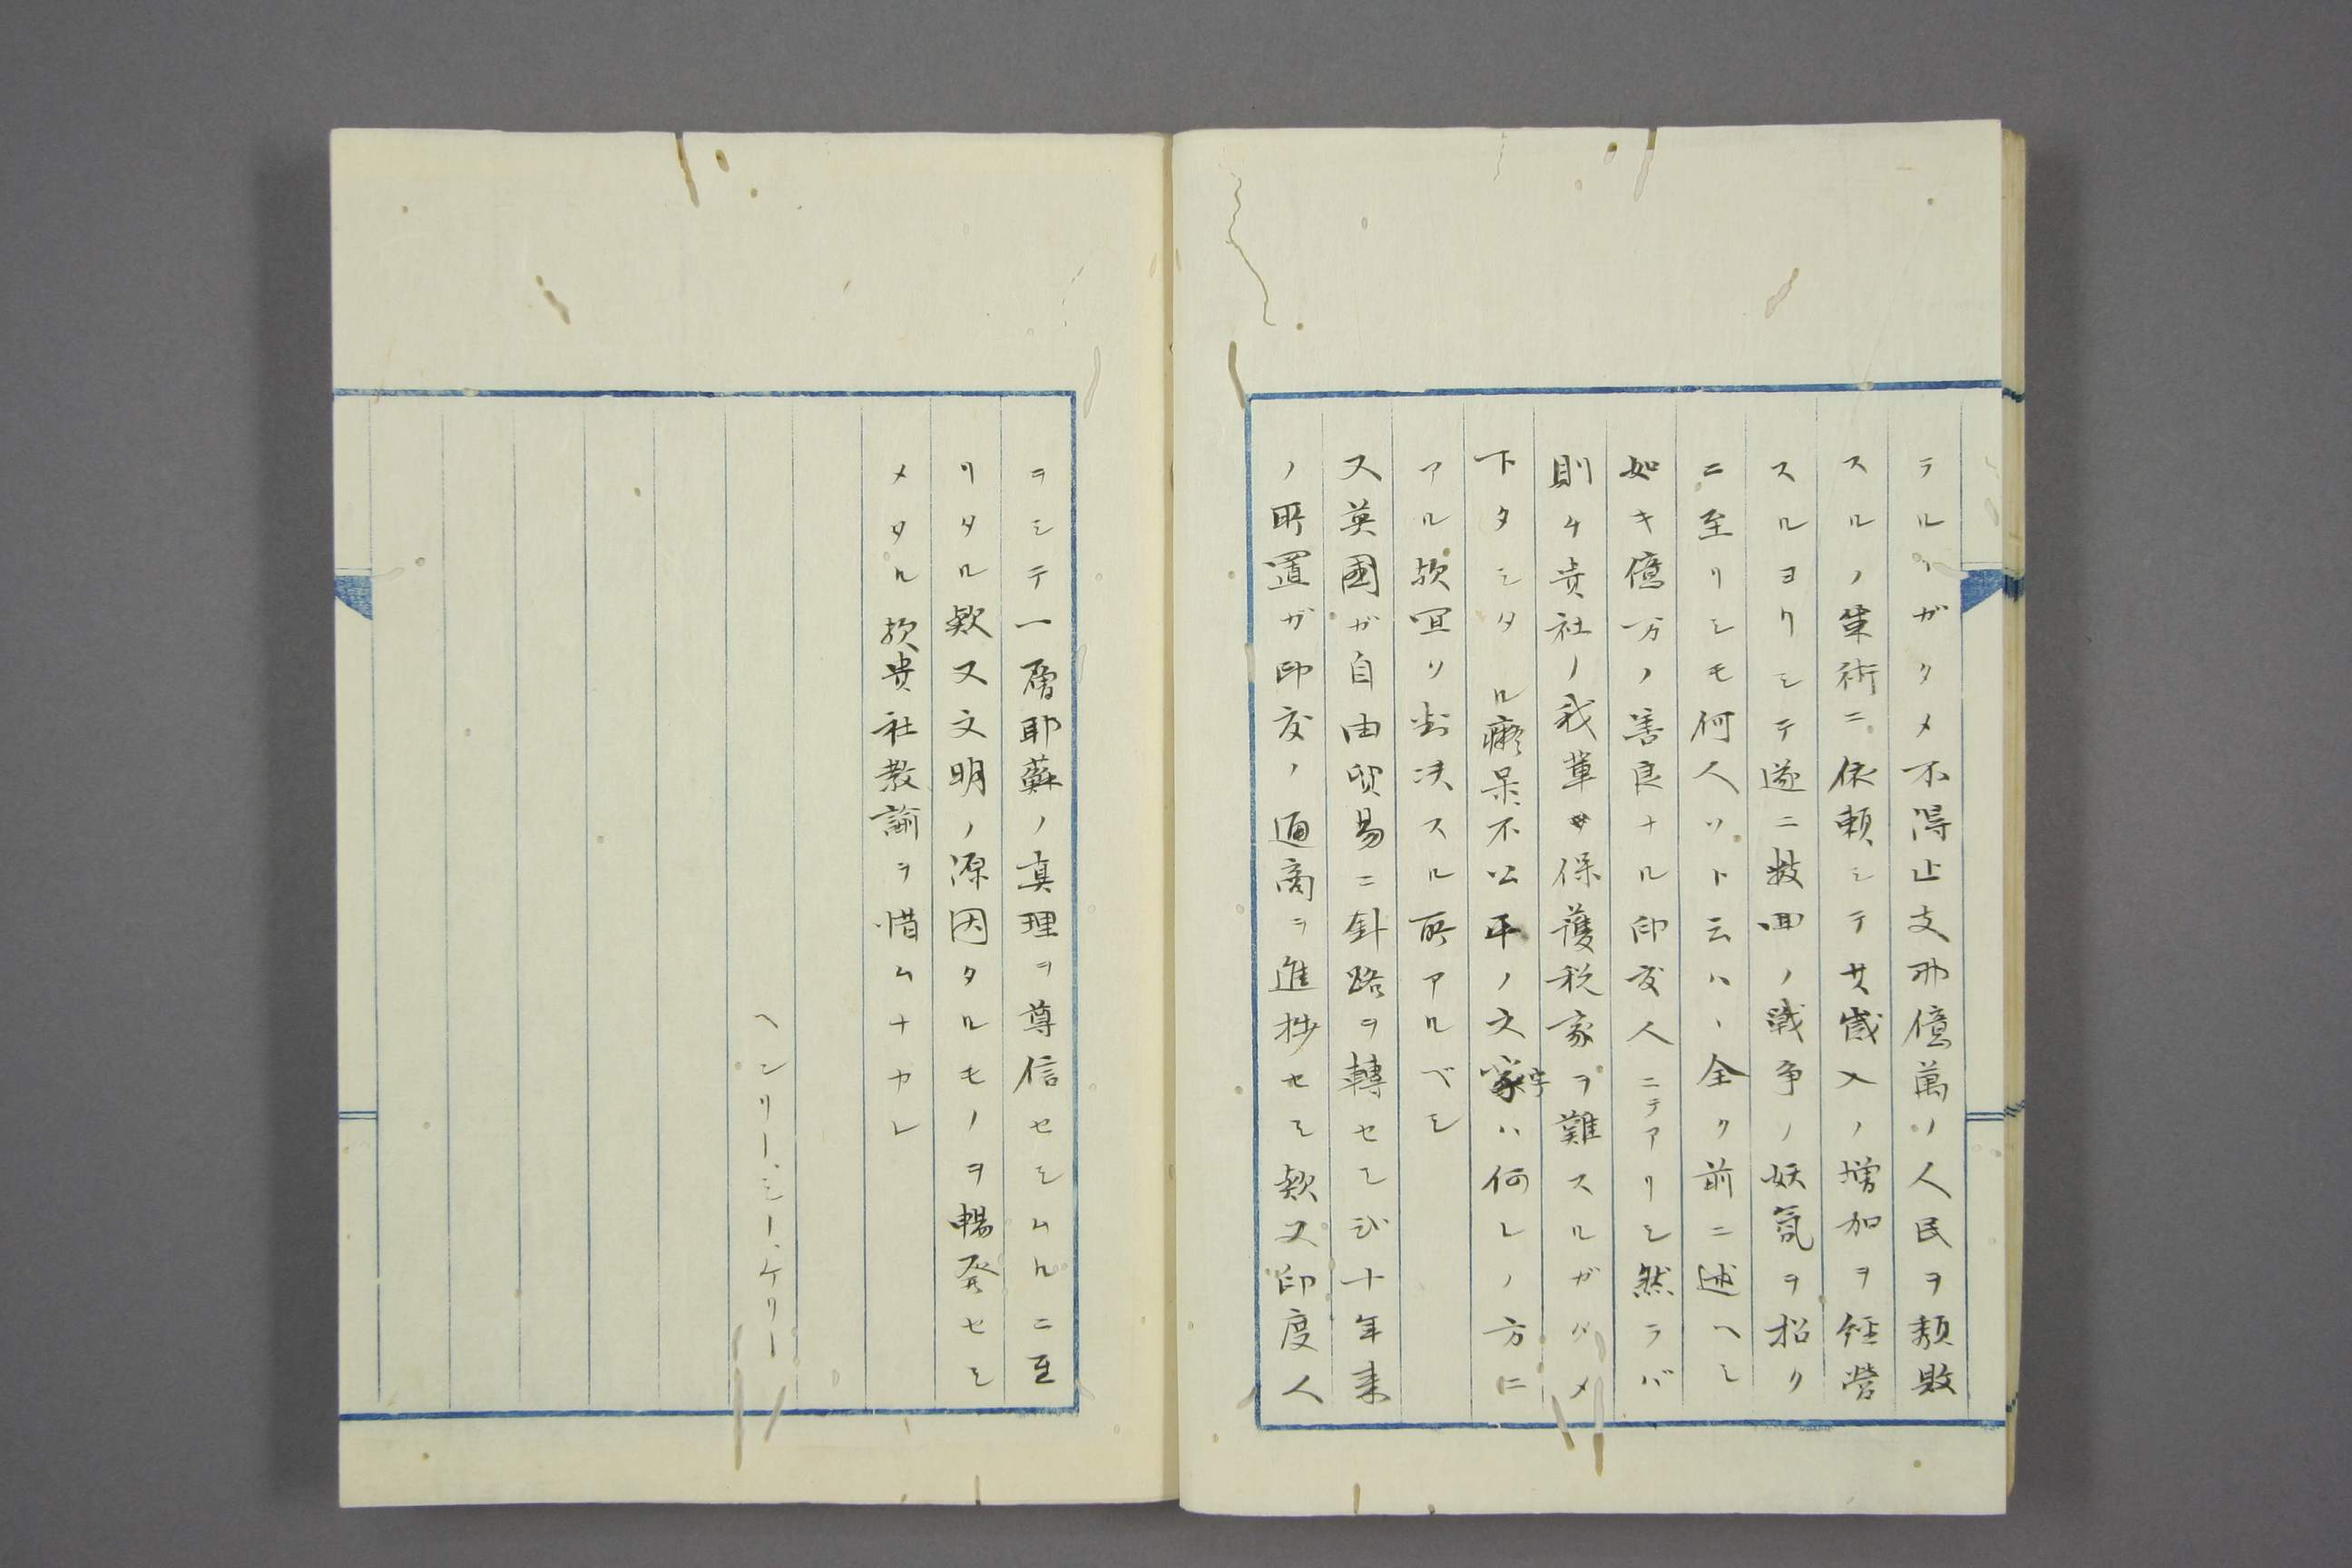 ラルヽガタメ不得止支那億萬ノ人民ヲ頽敗
スルノ筞術ニ依頼シテ其歳入ノ増加ヲ経営
スルヨリシテ遂ニ数回ノ戦争ノ妖氣ヲ招ク
ニ至リシモ何人ソト云ハヽ全ク前ニ述ヘシ
如キ億万ノ善良ナル印度人ニテアリシ然ラバ
則チ貴社ノ我輩
保護税家ヲ難スルガタメ
下タシタル癡呆不公平ノ文字ハ何レノ方ニ
アル欤冝リ判决スル所アルベシ
又英國ガ自由貿易ニ針路ヲ轉セシ以十年来
ノ所置ガ印度ノ通商ヲ進捗セシ欤又印度人
ヲシテ一層耶蘇ノ真理ヲ尊信セシムルニ至
リタル欤又文明ノ源因タルモノヲ暢発セシ
メタル欤貴社教諭ヲ惜ムナカレ
ヘンリー、シー、ケリー